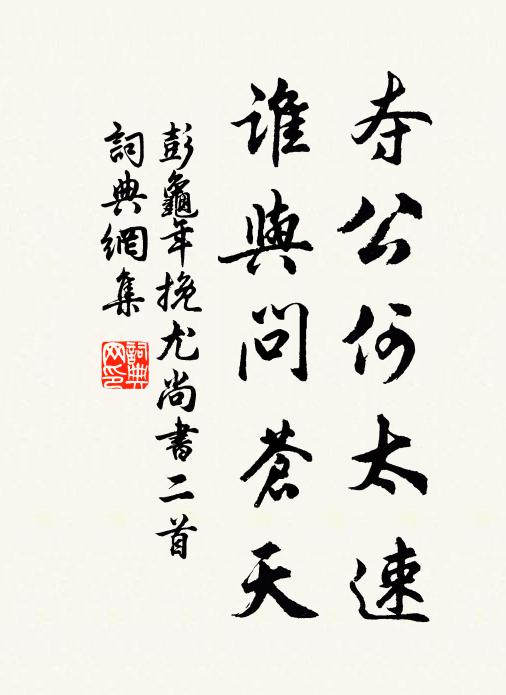 夺公何太速
誰與問蒼天
彭龜年挽尤尚書二首
詞典網集
詞典网印